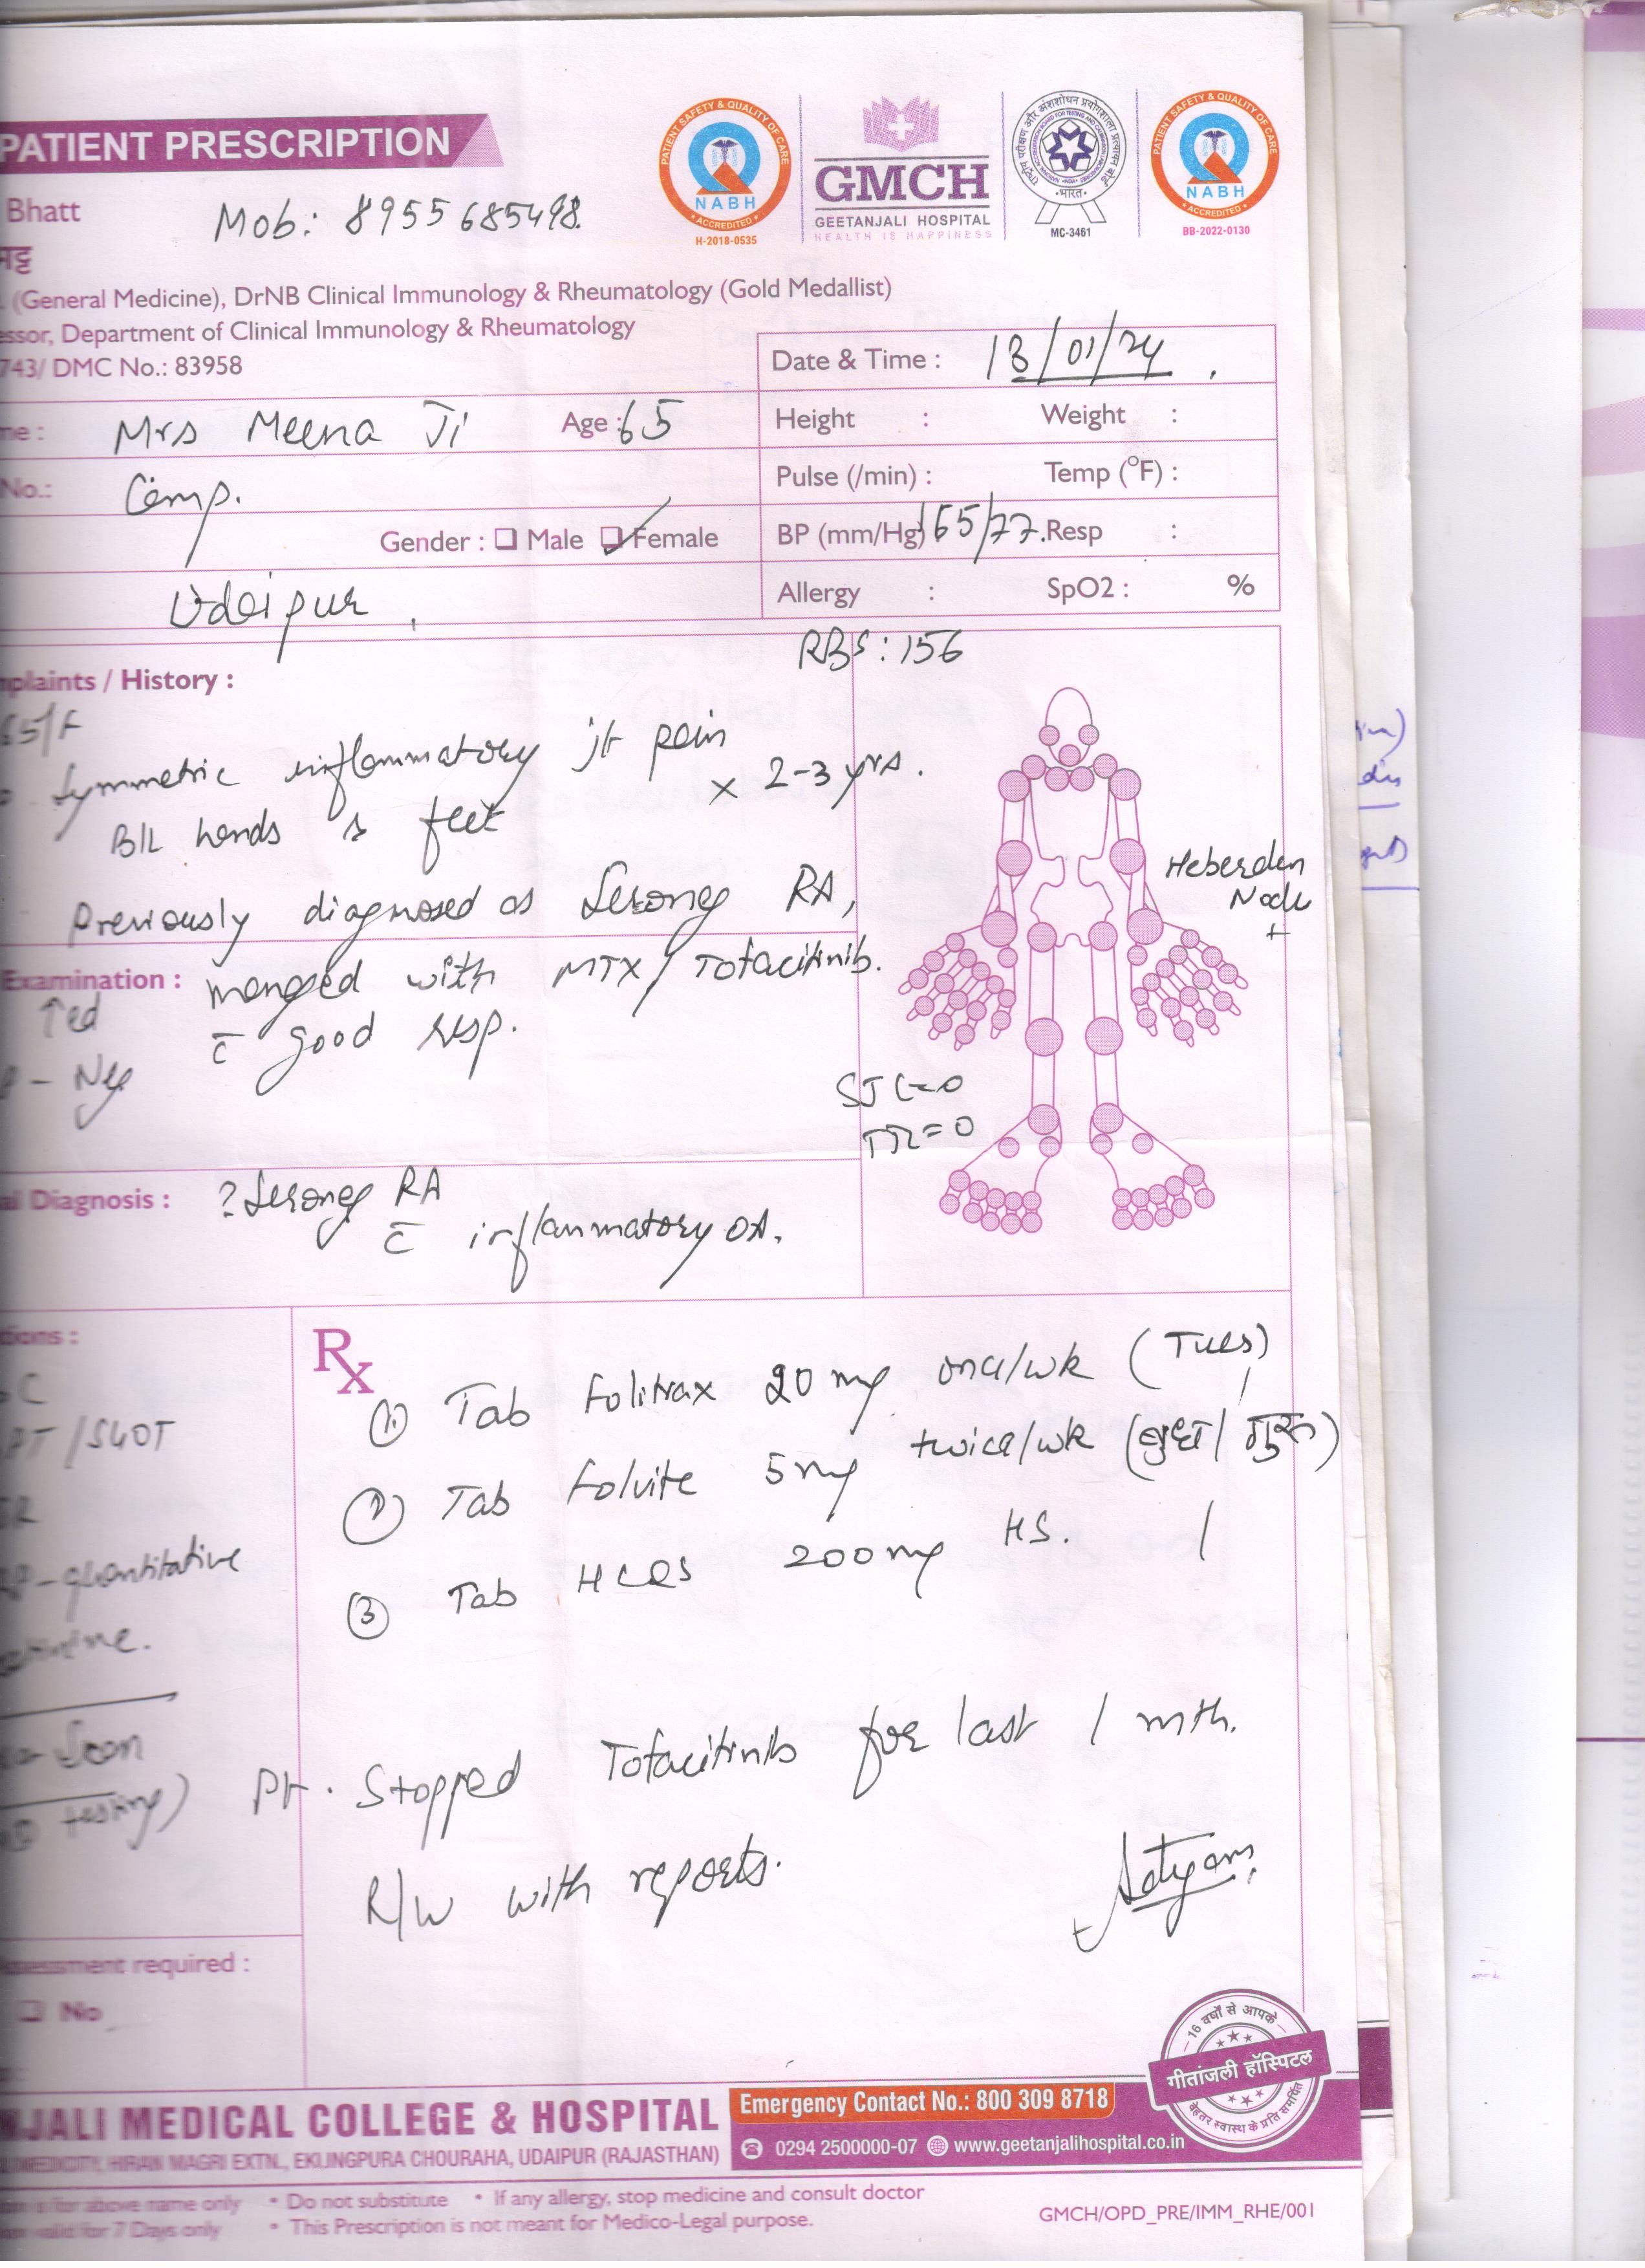 PATIENT PRESCRIPTION
Bhatt
Mob: 8955685498
(General Medicine), DrNB Clinical Immunology & Rheumatology (Gold Medallist)
essor, Department of Clinical Immunology & Rheumatology
743/ DMC No.: 83958
PATIENT SAFETY & QUALITY OF CARE
NABH
ACCREDITED
H-2018-0535
GMCH
GEETANJALI HOSPITAL
HEALTH IS HAPPINESS
भारत
MC-3461
PATIENT SAFETY & QUALITY OF CARE
NABH
ACCREDITED
BB-2022-0130
Date & Time : 13/01/24
me : Mrs Meena Ji Age : 65
Height : Weight :
No.: Camp.
Pulse (/min) : Temp (°F) :
Gender : Male Female
BP (mm/Hg) 165/77. Resp :
Udaipur,
Allergy : SpO2 : %
RBS : 156
plaints / History :
65/F
Symmetric inflammatory jt pain
x 2-3 yrs.
B/L hands & feet
Previously diagnosed as Seroneg RA,
Heberden
Node
+
Examination : manged with MTX/ Tofacitinib.
↑ed
c̄ good resp.
- Neg
SJC=0
TJC=0
al Diagnosis : ? Seroneg RA
c̄ inflammatory OA.
tions :
C
PT /SGOT
SR
-quantitative
Soon
testing)
Rx
① Tab Folitrax 20 mg once/wk (Tues)
② Tab Folvite 5mg twice/wk (बुध / गुरु)
③ Tab HCQS 200mg HS.
Pt. Stopped Tofacitinib for last 1 mth.
R/W with reports.
Satyam
essment required :
No
NJALI MEDICAL COLLEGE & HOSPITAL
MEDICITY, HIRAN MAGRI EXTN., EKLINGPURA CHOURAHA, UDAIPUR (RAJASTHAN)
Emergency Contact No.: 800 309 8718
0294 2500000-07 www.geetanjalihospital.co.in
16 वर्षों से आपके
गीतांजली हॉस्पिटल
बेहतर स्वास्थ के प्रति समर्पित
is for above name only • Do not substitute • If any allergy, stop medicine and consult doctor
valid for 7 Days only • This Prescription is not meant for Medico-Legal purpose.
GMCH/OPD_PRE/IMM_RHE/001